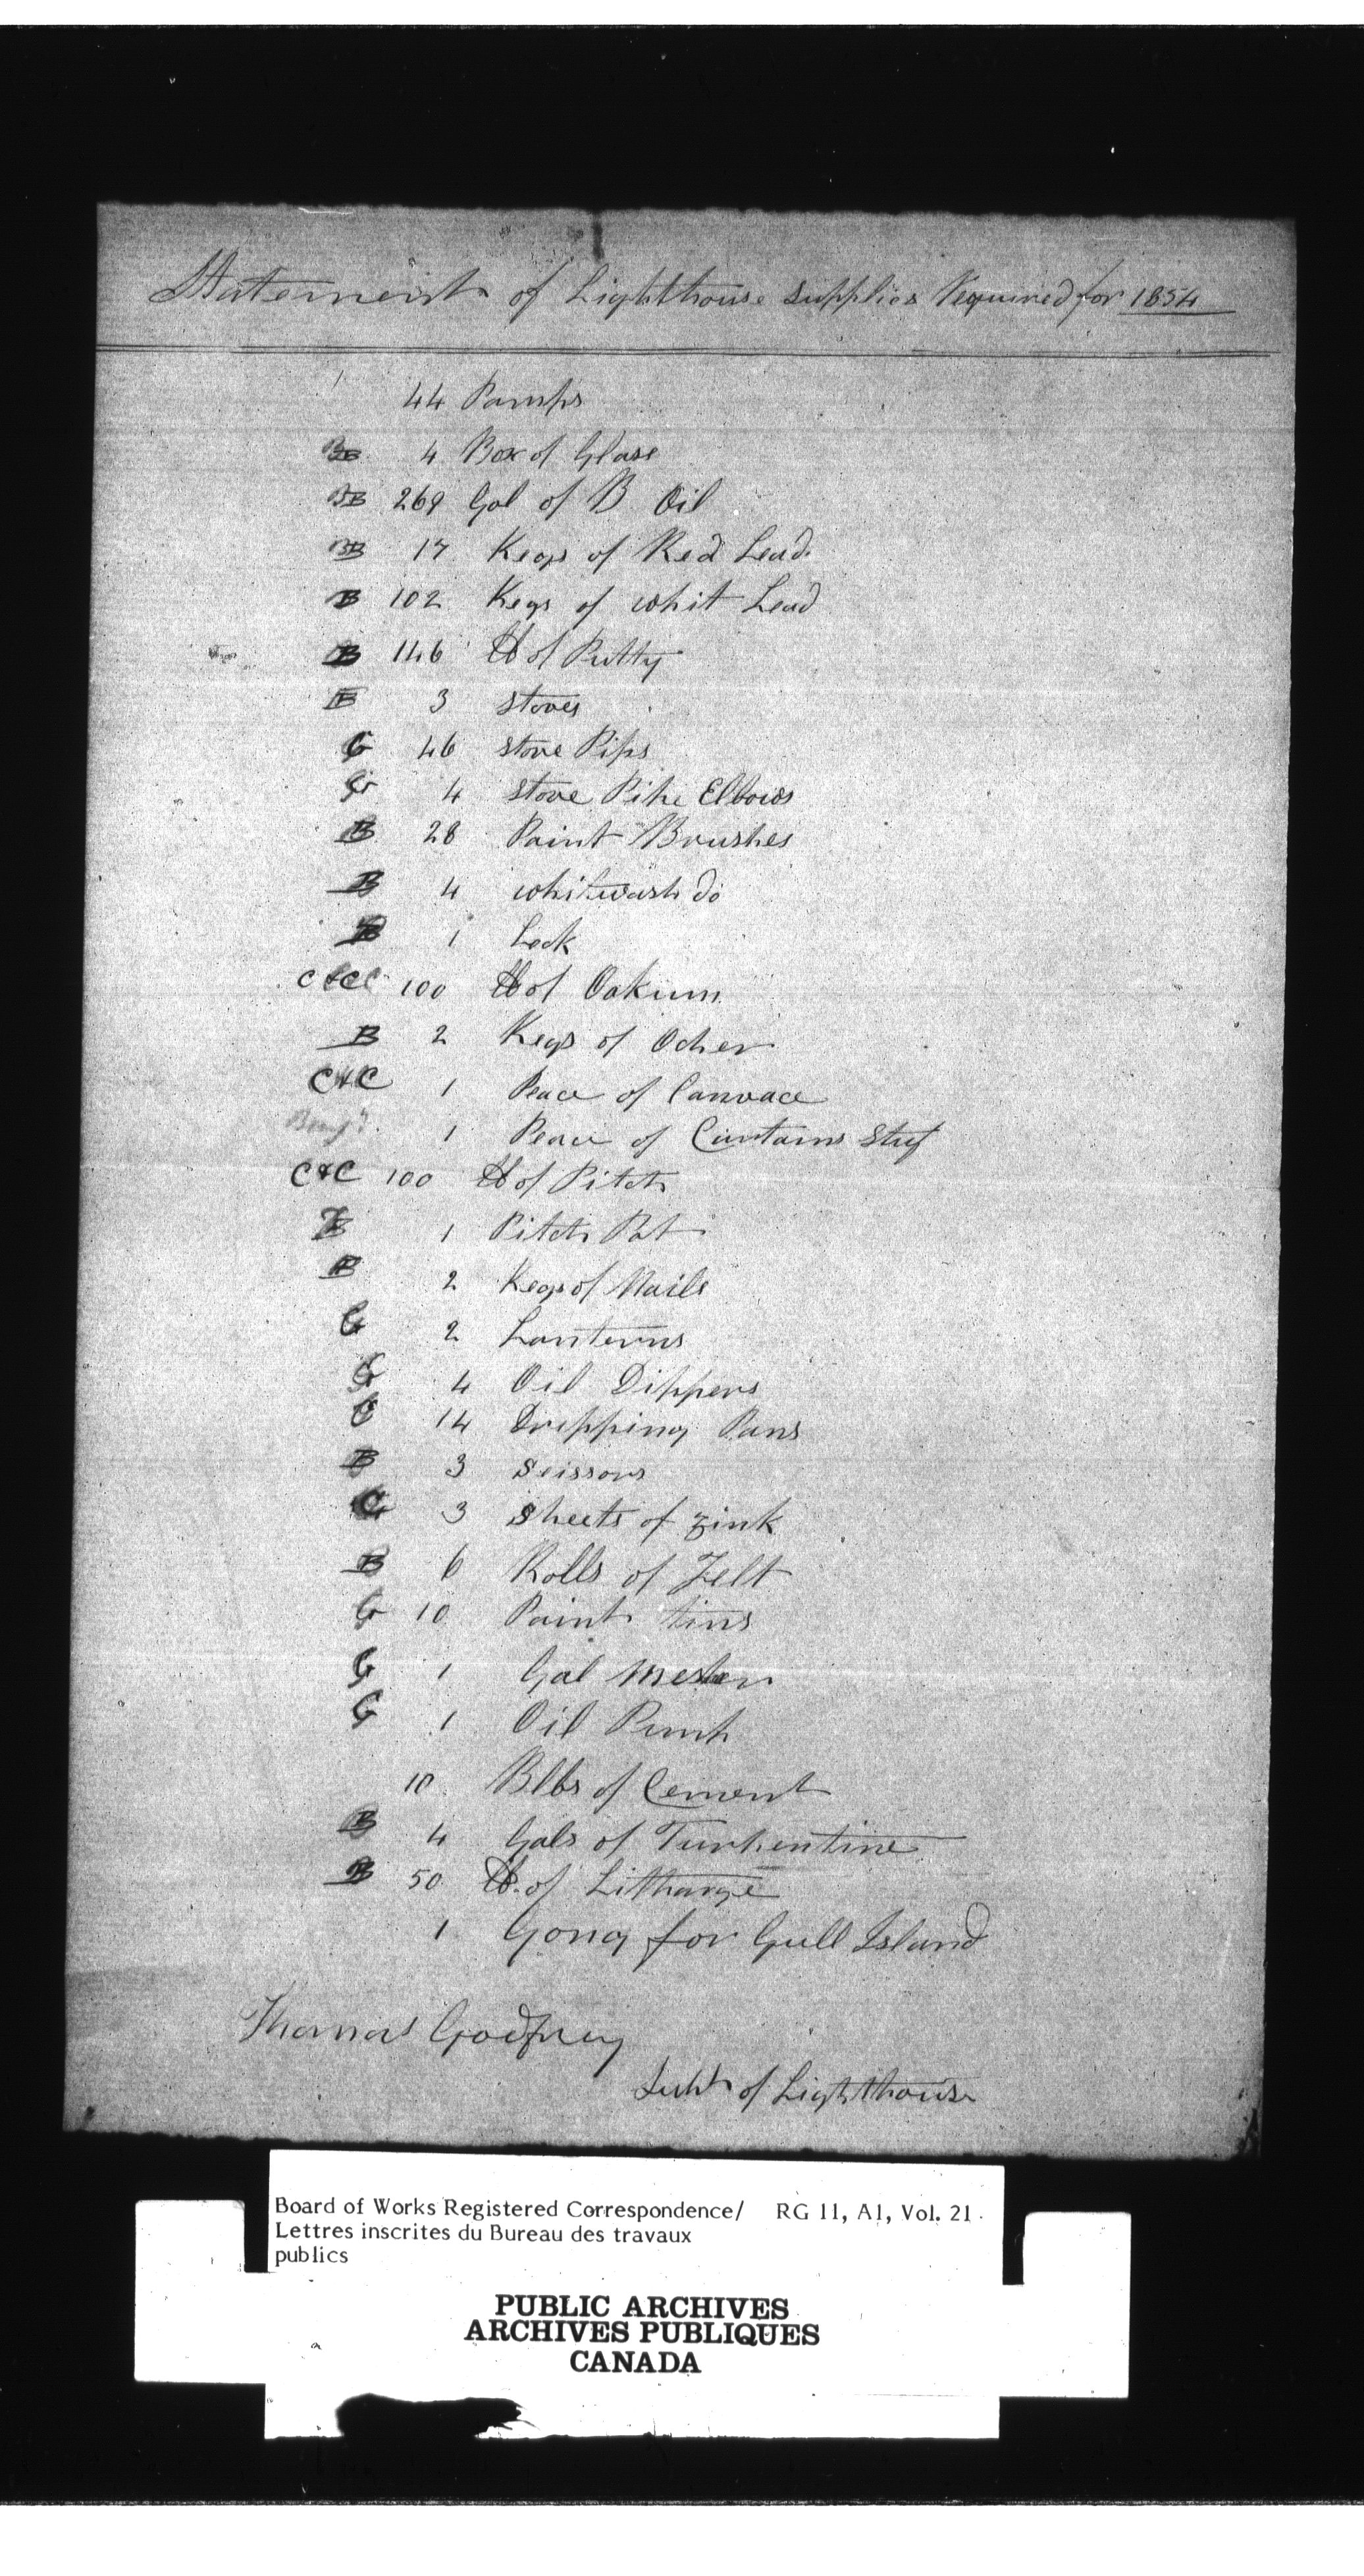 Statement of Lighthouse supplies Required for 1854
44 Pamps
B 4 Box of Glase
B 269 Gal of B Oil
B 17 Kegs of Red Lead
B 102 Kegs of whit Lead
B 146 lb of Putty
B 3 stoves
G 46 stove Pips
G 4 stove Pipe Elbows
B 28 Paint Brushes
B 4 whitwash do
B 1 Lock
C & C 100 lb of Oakum
B 2 Kegs of Ocher
C & C 1 Peace of Canvace
1 Peace of Curtains Stuf
C & C 100 lb of Pitch
B 1 Pitch Pot
B 2 Kegs of Nails
G 2 Lanterns
G 4 Oil Dippers
G 14 Dripping Pans
B 3 Scissors
G 3 Sheets of zink
B 6 Rolls of Felt
G 10 Paint tins
G 1 Gal
G 1 Oil Pump
10 Blbs of Cement
B 4 Gals of Turpentine
B 50 lb. of Litharge
1 Gong for Gull Island
Thomas Godfrey
Supt of Lighthouse
Board of Works Registered Correspondence/ RG 11, A1, Vol. 21.
Lettres inscrites du Bureau des travaux
publics
PUBLIC ARCHIVES
ARCHIVES PUBLIQUES
CANADA